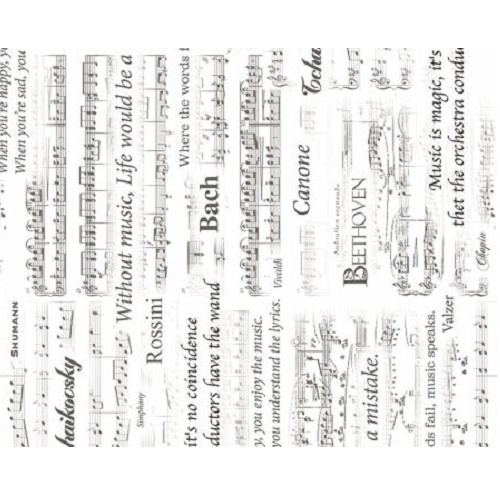 When you're happy, y
When you're sad, you
Without music, Life would be a
Where the words f
Bach
Vivaldi
Canone
Tcha
Andante con moto
BEETHOVEN
Music is magic, it's
thet the orchestra condu
Chopin
SHUMANN
haikovsky
Simphony
Rossini
it's no coincidence
ductors have the wand
y, you enjoy the music.
you understand the lyrics.
a mistake.
ds fail, music speaks.
Valzer